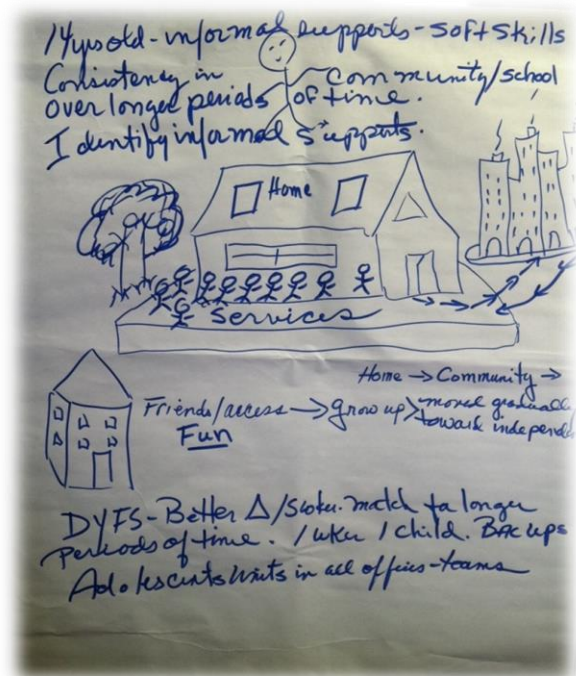 14 yrs old - informal supports - Soft Skills
Consistency in community/school
over longer periods of time.
Identify informal supports.
Home
Services
Home → Community →
Friends/access → grow up > moved gradually
Fun toward independ
DYFS - Better Δ/ match for longer
periods of time. 1 wkr 1 child. BAC ups
Adolescents Units in all offices - teams